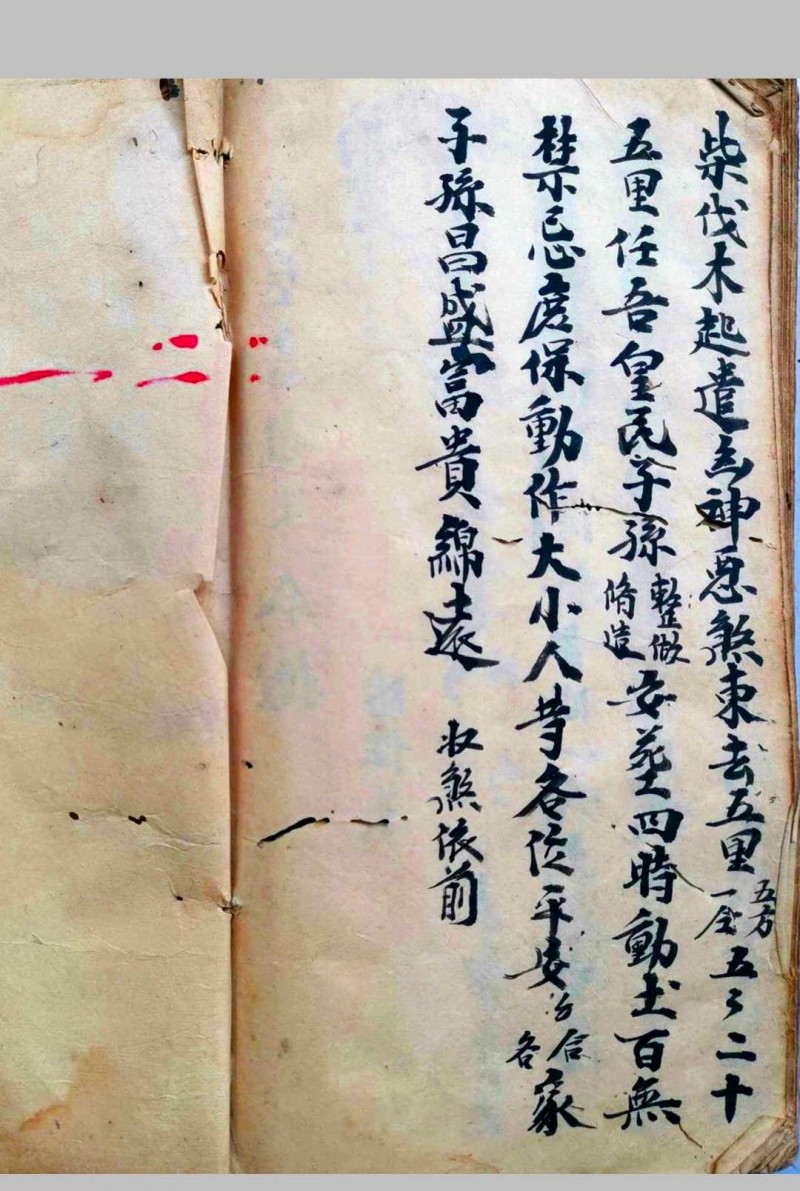 柴伐木起遣玄神惡煞東去五里五方一仝五〻二十
五里任吾皇民子孫整做脩造安葬四時動土百無
禁忌度保動作大小人等各位平安合各家
子孫昌盛富貴綿遠 收煞依前